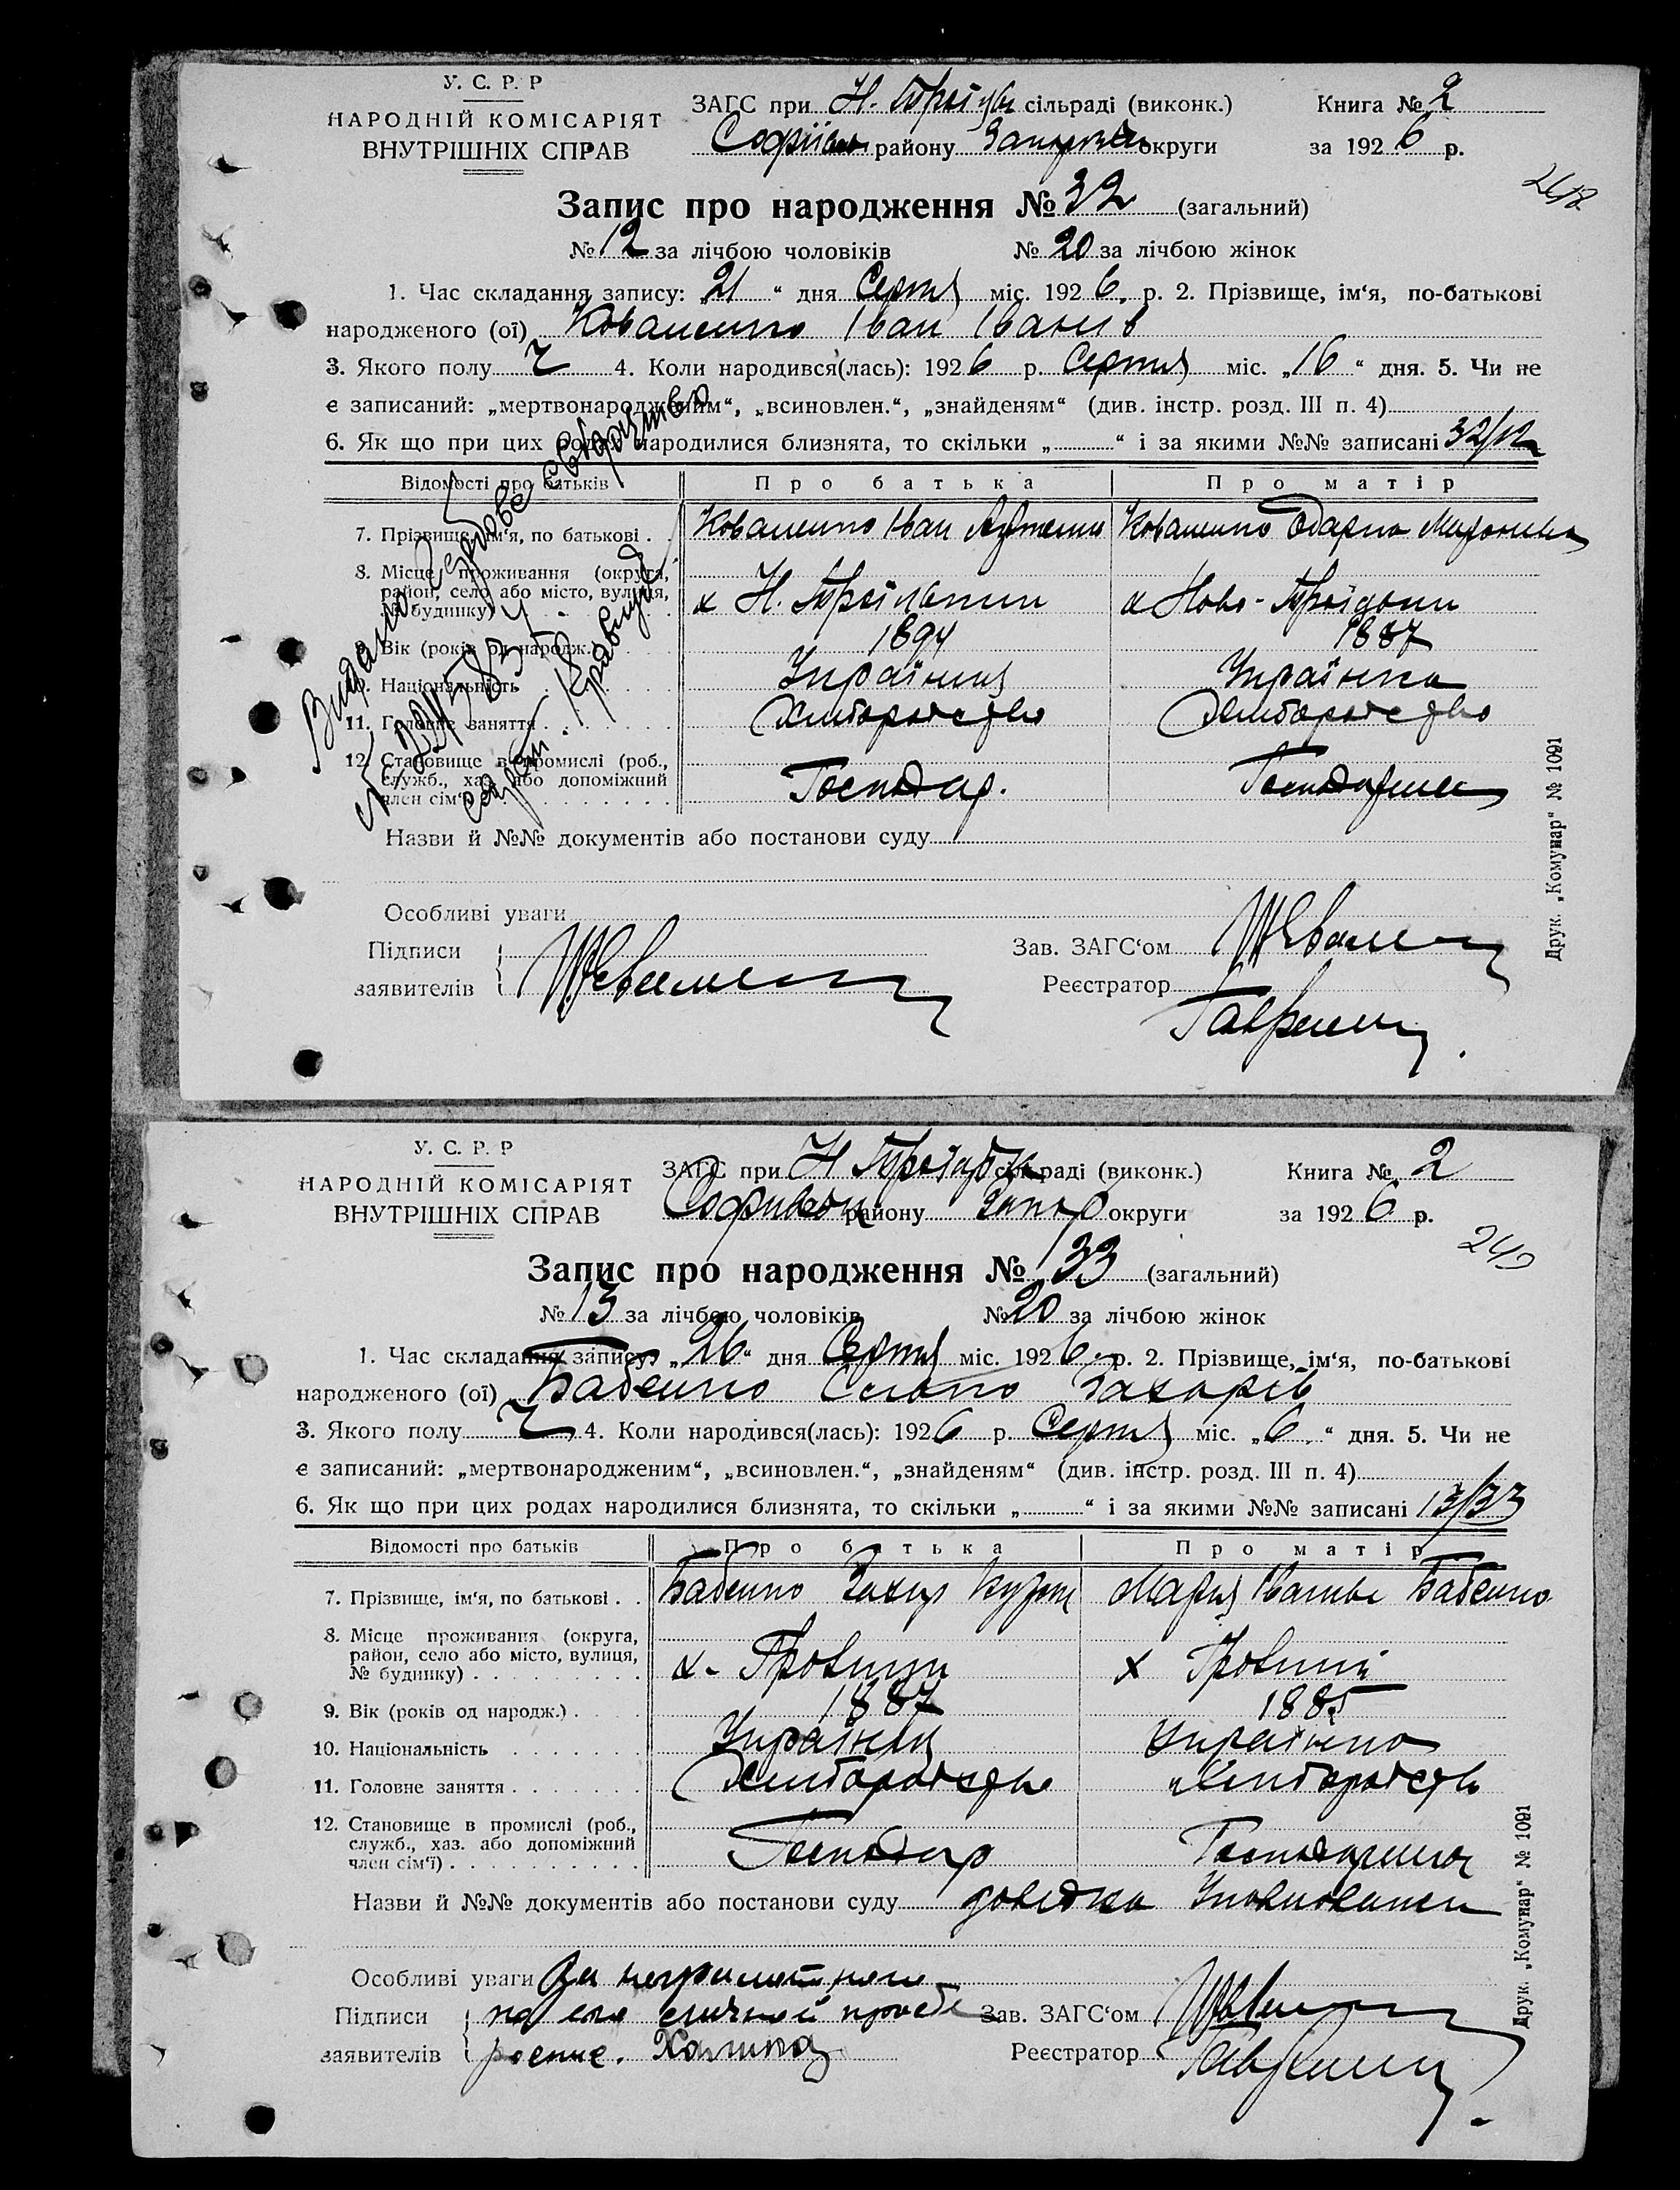 У. С. Р. Р
НАРОДНІЙ КОМІСАРІЯТ
ВНУТРІШНІХ СПРАВ
ЗАГС при Н. Троїцьк сільраді (виконк.)
Софіївськ району округи
Книга № 2
за 1926 р.
Запис про народження № 32 (загальний)
№ 12 за лічбою чоловіків № 20 за лічбою жінок
1. Час складання запису: „21“ дня Серпня міс. 1926. р. 2. Прізвище, ім‘я, по-батькові
народженого (ої) Коваленко Іван Іванів
3. Якого полу Ч 4. Коли народився(лась): 1926 р. Серпня міс. „16“ дня. 5. Чи не
є записаний: „мертвонародженим“, „всиновлен.“, „знайденям“ (див. інстр. розд. III п. 4)
6. Як що при цих родах народилися близнята, то скільки „ “ і за якими №№ записані 32/12
Відомості про батьків Про батька Про матір
7. Прізвище, ім‘я, по батькові . . Коваленко Іван Коваленко Одарка
8. Місце проживання (округа,
район, село або місто, вулиця,
№ будинку) х Н. х Ново-
9. Вік (років од народж.) 1894 1887
10. Національність Українец Українка
11. Головне заняття Хліборобство Хліборобство
12. Становище в промислі (роб.,
служб., хаз. або допоміжний
член сім‘ї) Господар. Господарка
Видано
Назви й №№ документів або постанови суду
Особливі уваги
Підписи
заявителів
Зав. ЗАГС‘ом
Реєстратор
Друк. „Комунар“ № 1091
У. С. Р. Р
НАРОДНІЙ КОМІСАРІЯТ
ВНУТРІШНІХ СПРАВ
ЗАГС при Н Троїцьк сільраді (виконк.)
Софиевськ району Запор округи
Книга № 2
за 1926 р.
Запис про народження № 33 (загальний)
№ 13 за лічбою чоловіків № 20 за лічбою жінок
1. Час складання запису: „26“ дня Серпня міс. 1926. р. 2. Прізвище, ім‘я, по-батькові
народженого (ої) Бабенко Захарів
3. Якого полу Ч 4. Коли народився(лась): 1926 р. Серпня міс. „6.“ дня. 5. Чи не
є записаний: „мертвонародженим“, „всиновлен.“, „знайденям“ (див. інстр. розд. III п. 4)
6. Як що при цих родах народилися близнята, то скільки „ “ і за якими №№ записані 13/33
Відомості про батьків Про батька Про матір
7. Прізвище, ім‘я, по батькові . . Бабенко Захар Мария Іванівна Бабенко
8. Місце проживання (округа,
район, село або місто, вулиця,
№ будинку) х. х
9. Вік (років од народж.) 1887 1885
10. Національність Українец Українка
11. Головне заняття Хліборобство Хліборобств
12. Становище в промислі (роб.,
служб., хаз. або допоміжний
член сім‘ї) Господар Господарка
Назви й №№ документів або постанови суду довідка
Особливі уваги За неграмотного
Підписи по его личной просьбе
заявителів роспис.
Зав. ЗАГС‘ом
Реєстратор
Друк. „Комунар“ № 1091